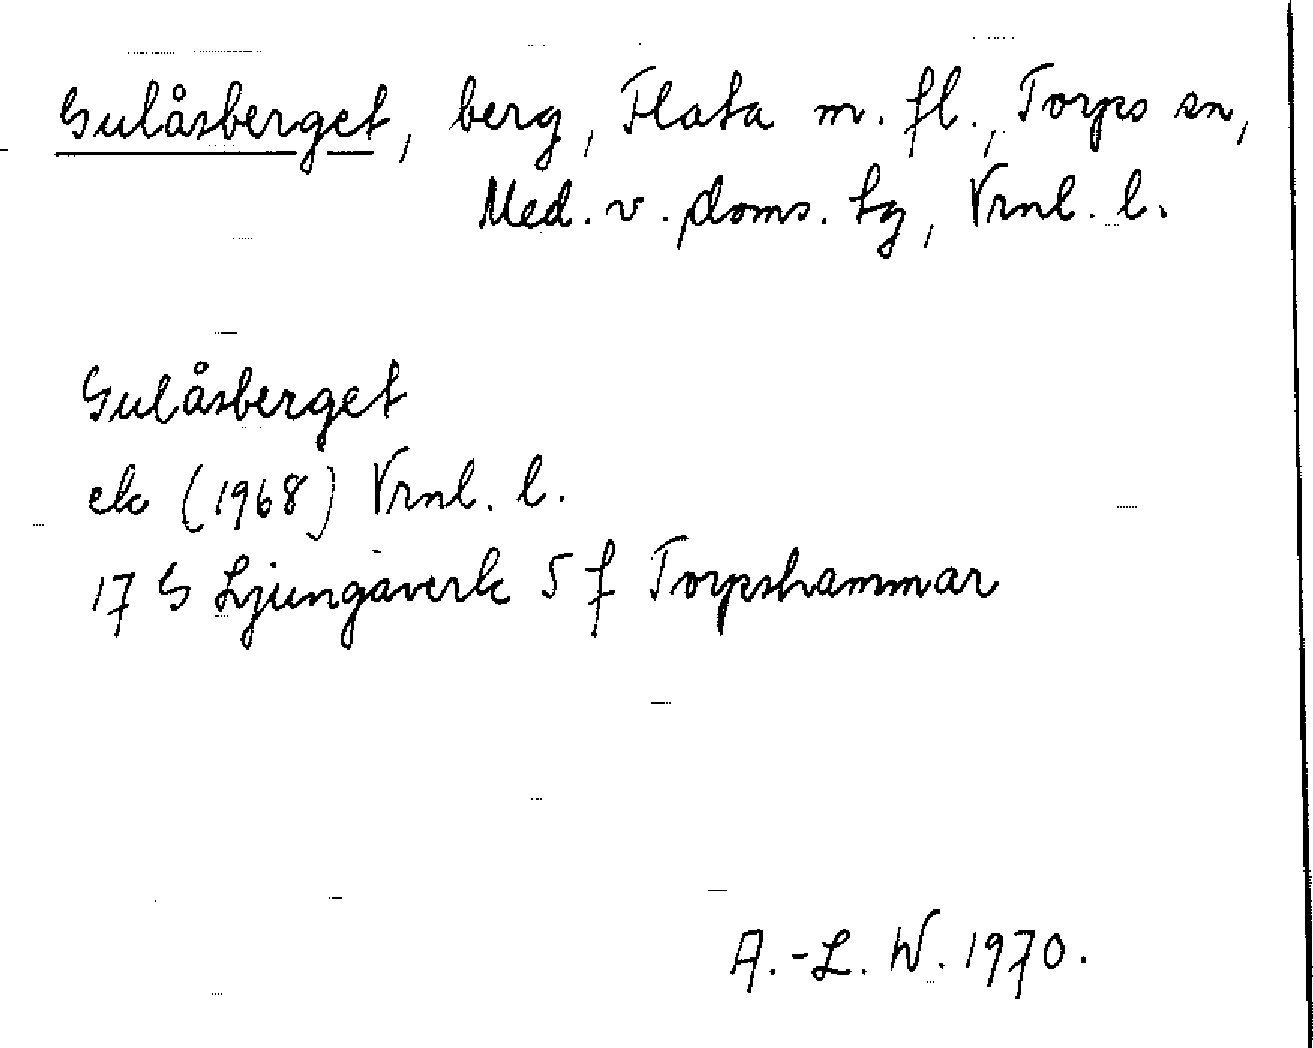 Gulåsberget, berg, Flata m. fl., Torps sn,
Med. v. doms. tg, Vrnl. l.
Gulåsberget
ek (1968) Vrnl. l.
17 G Ljungaverk 5 f Torpshammar
A.-L. W. 1970.